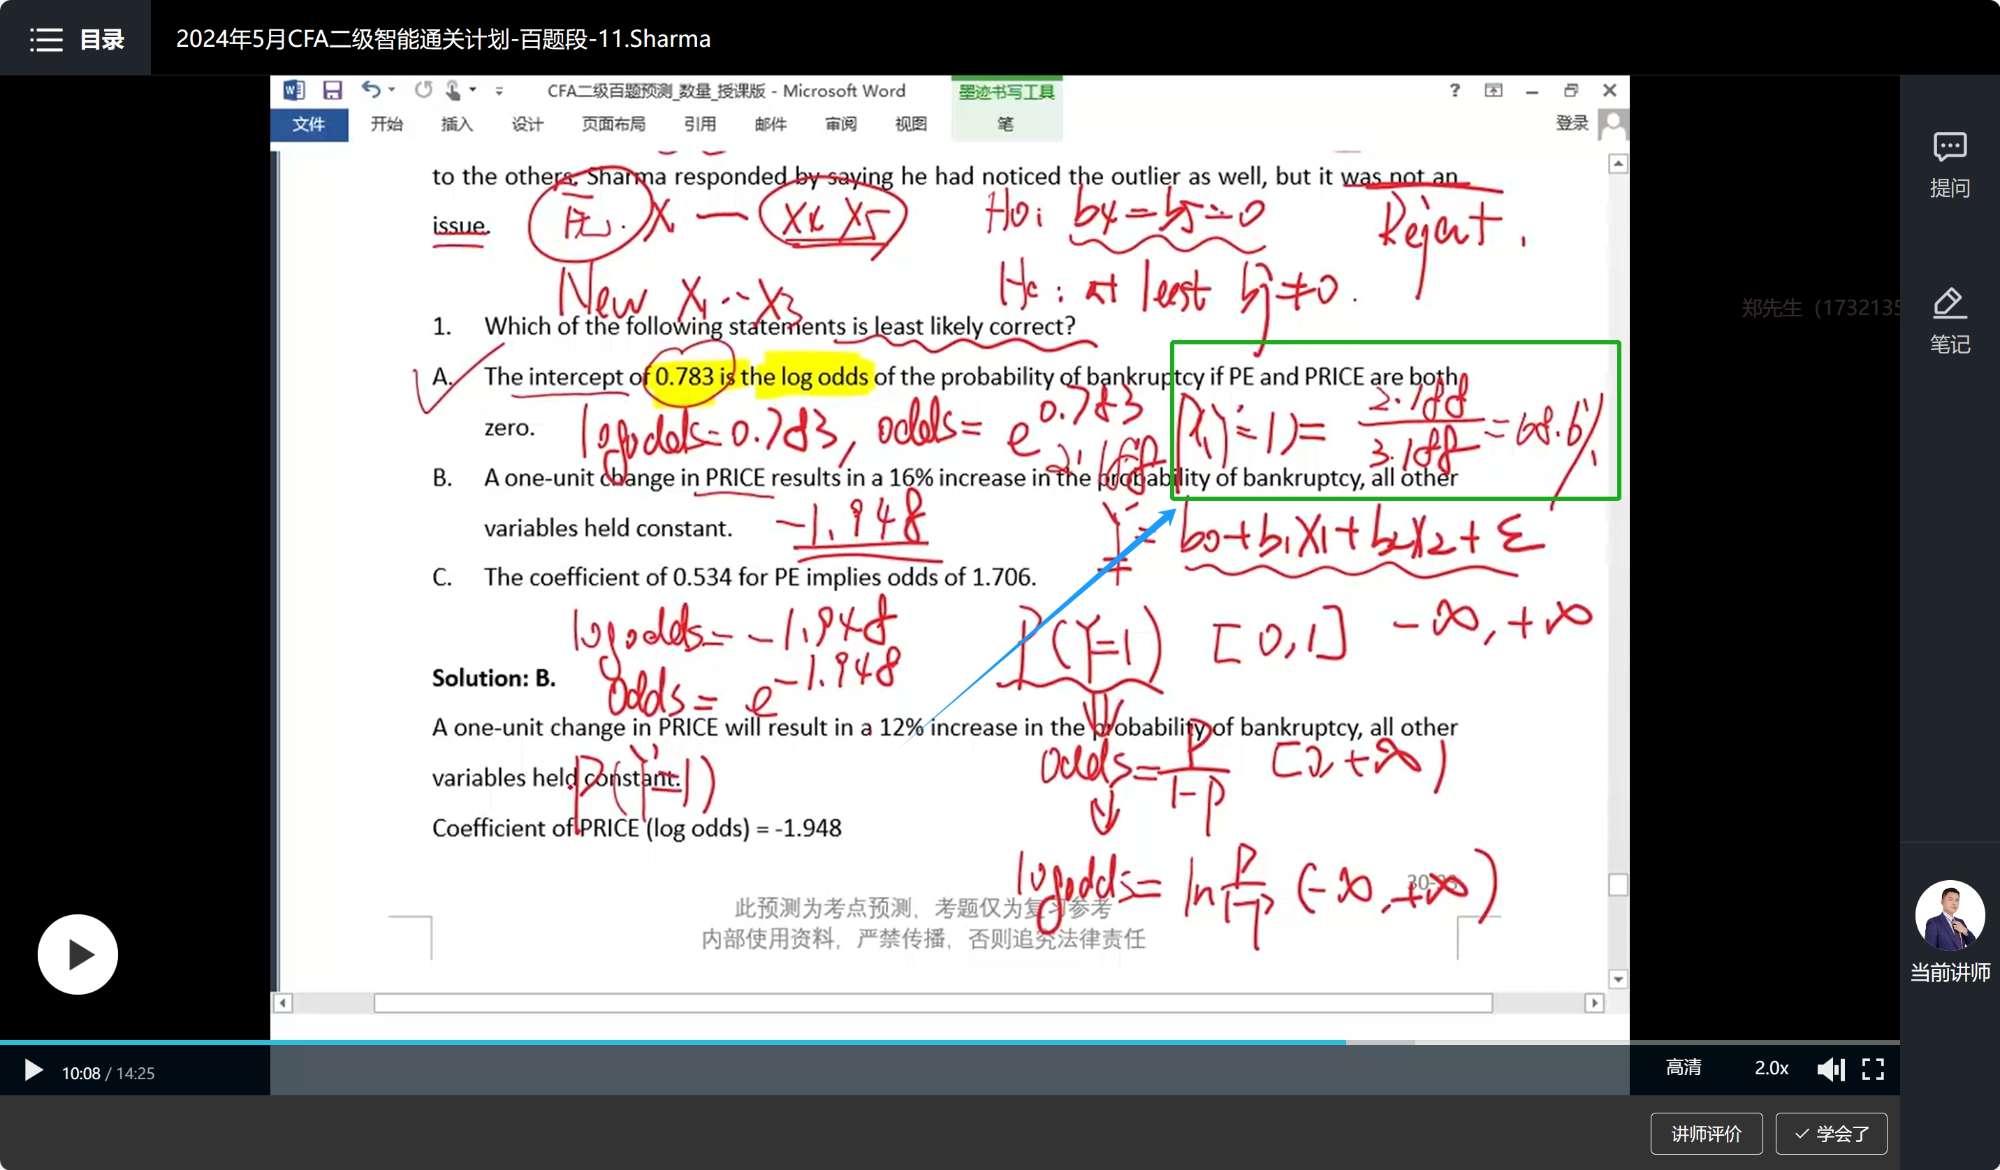 目录
2024年5月CFA二级智能通关计划-百题段-11.Sharma
CFA二级百题预测_数量_授课版 - Microsoft Word
墨迹书写工具
文件
开始
插入
设计
页面布局
引用
邮件
审阅
视图
笔
登录
to the others. Sharma responded by saying he had noticed the outlier as well, but it was not an
issue.
无. X — X4 X5
H0: b4=b5=0
Reject.
New X1 -- X3
at least bj≠0.
1. Which of the following statements is least likely correct?
A. The intercept of 0.783 is the log odds of the probability of bankruptcy if PE and PRICE are both
zero.
logodds=0.783, odds= e^0.783
2.188
=1)= 2.188/3.188 =68.6%
B. A one-unit change in PRICE results in a 16% increase in the probability of bankruptcy, all other
variables held constant.
-1.948
Y= b0+b1X1+b2X2+ε
C. The coefficient of 0.534 for PE implies odds of 1.706.
logodds= -1.948
P(Y=1) [0,1] -∞,+∞
odds= e^-1.948
Solution: B.
A one-unit change in PRICE will result in a 12% increase in the probability of bankruptcy, all other
variables held constant.
P(Y=1)
odds= P/1-P
+∞)
Coefficient of PRICE (log odds) = -1.948
logodds= ln P/1-P (-∞,+∞)
此预测为考点预测，考题仅为复习参考
内部使用资料，严禁传播，否则追究法律责任
郑先生（1732135
提问
笔记
当前讲师
10:08 / 14:25
高清
2.0x
讲师评价
学会了